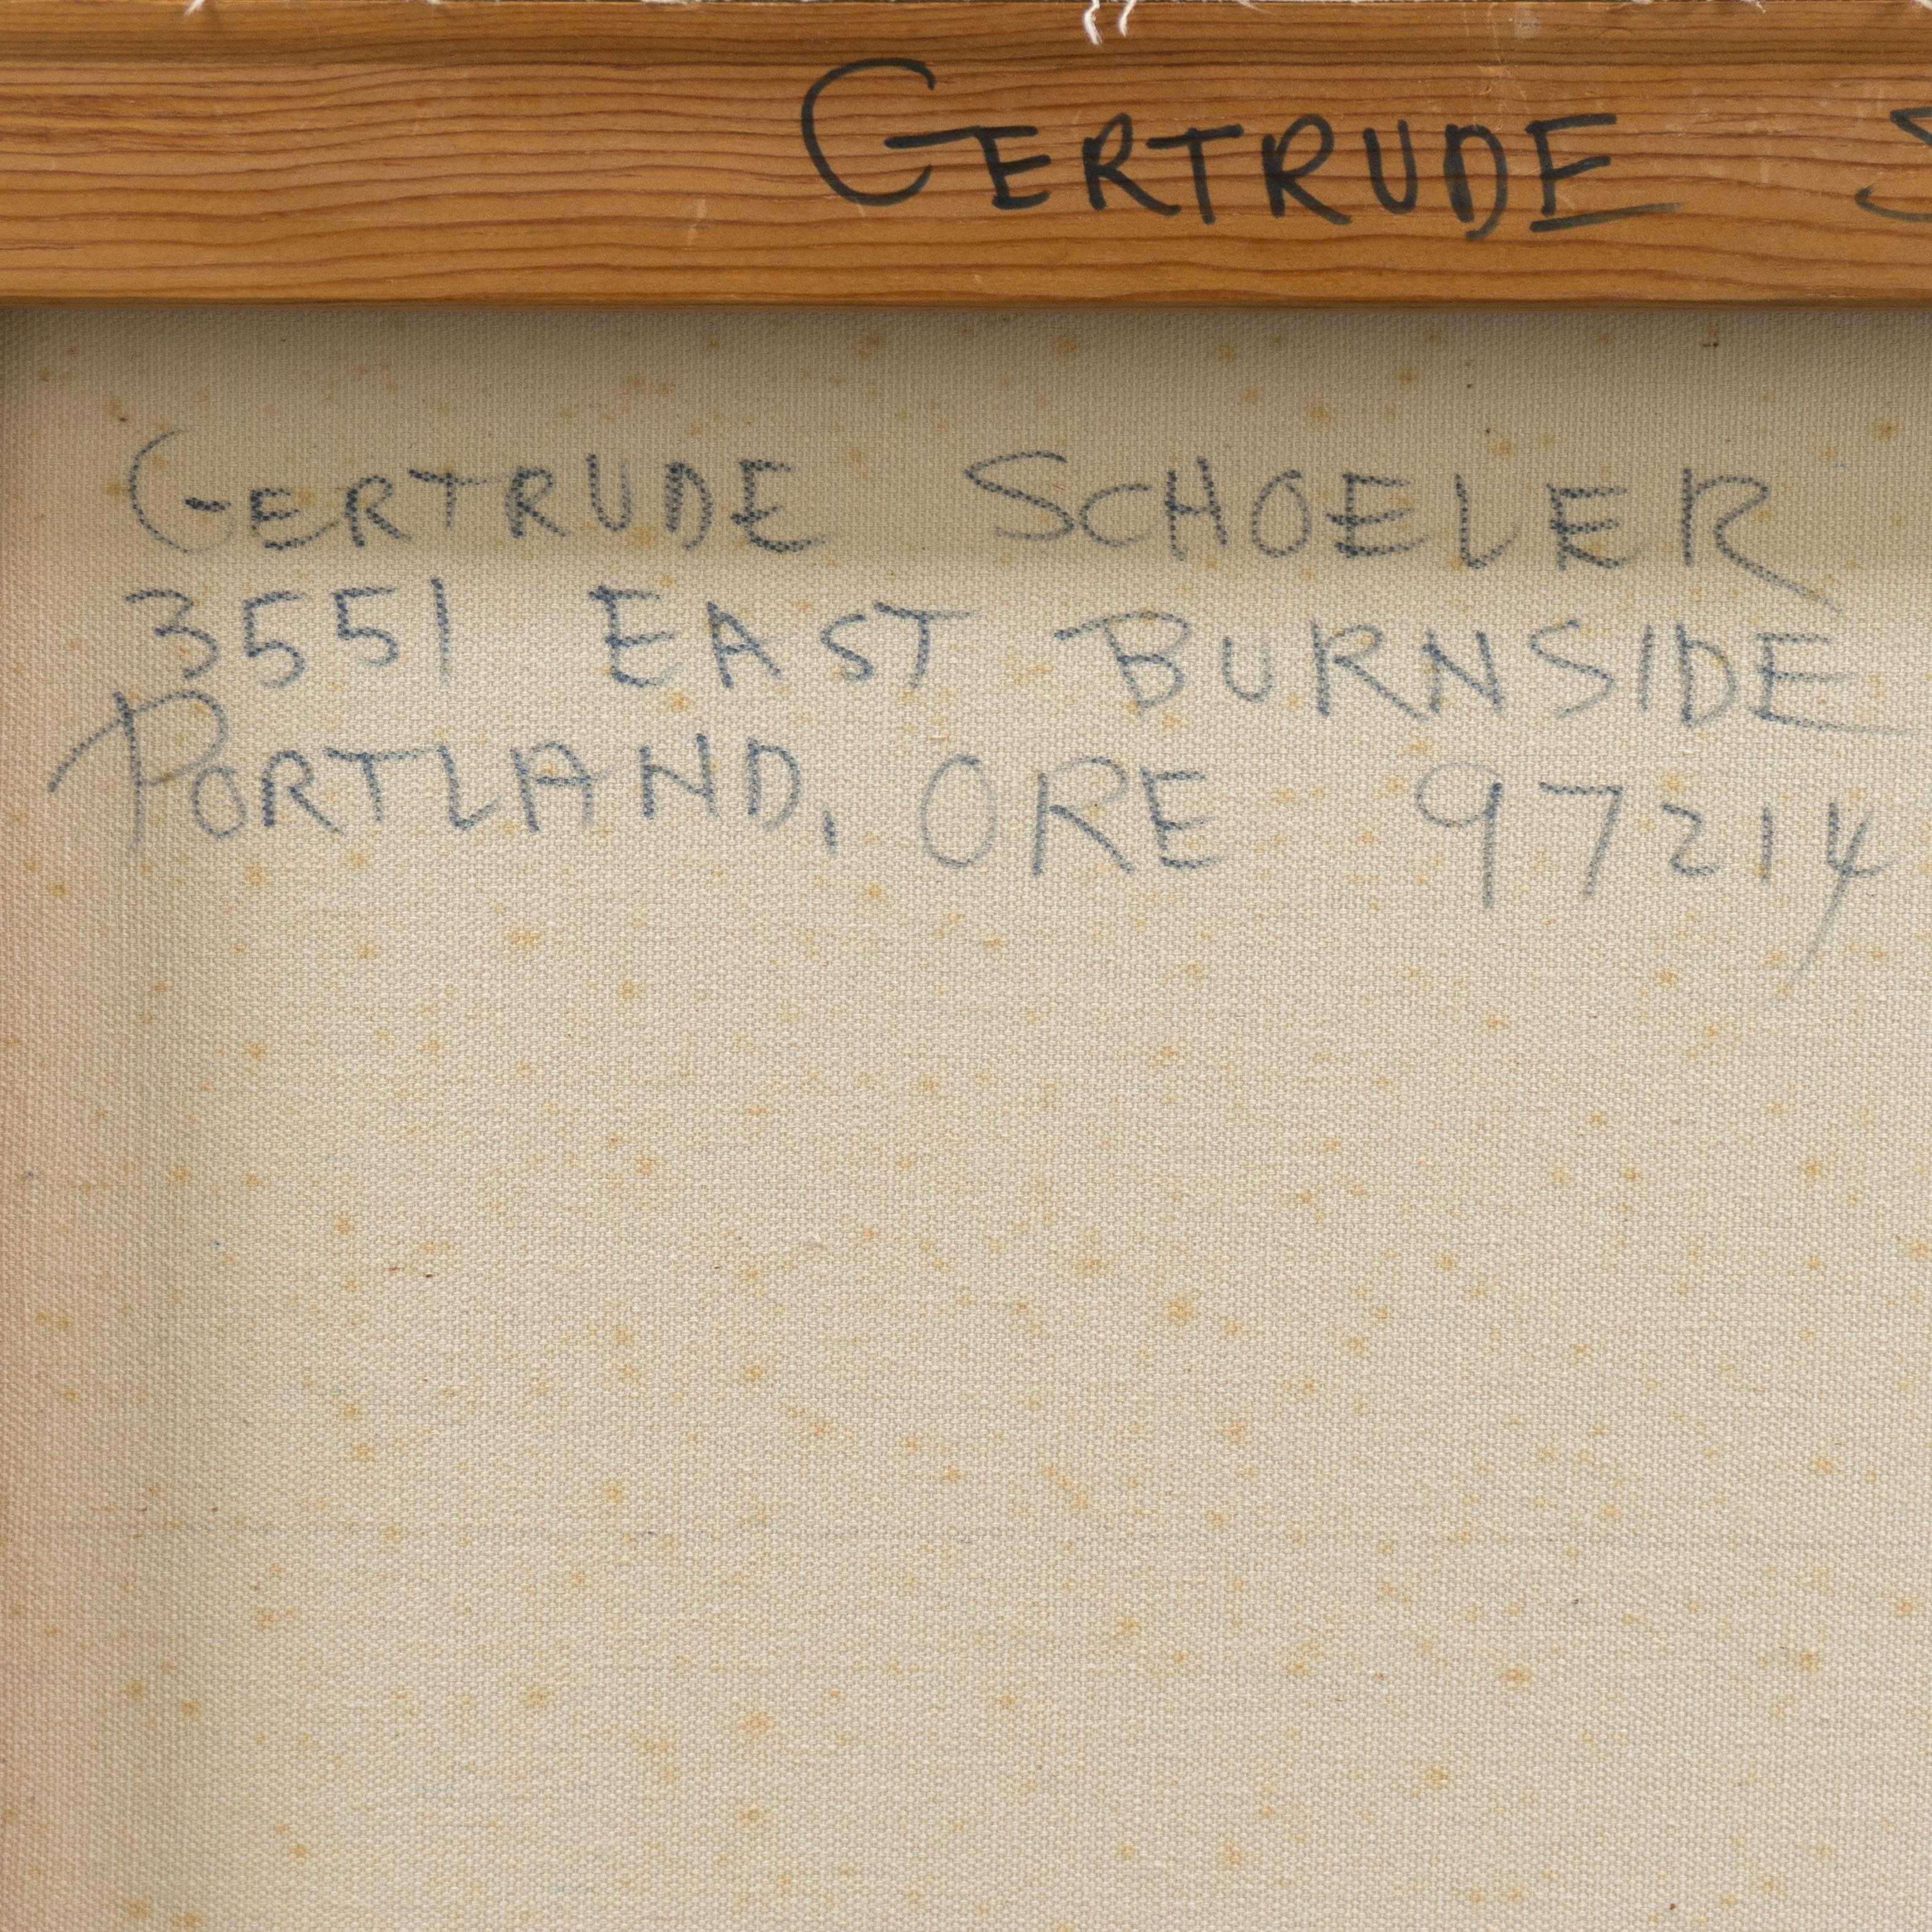 GERTRUDE S
GERTRUDE SCHOELER
3551 EAST BURNSIDE
PORTLAND, ORE 97214